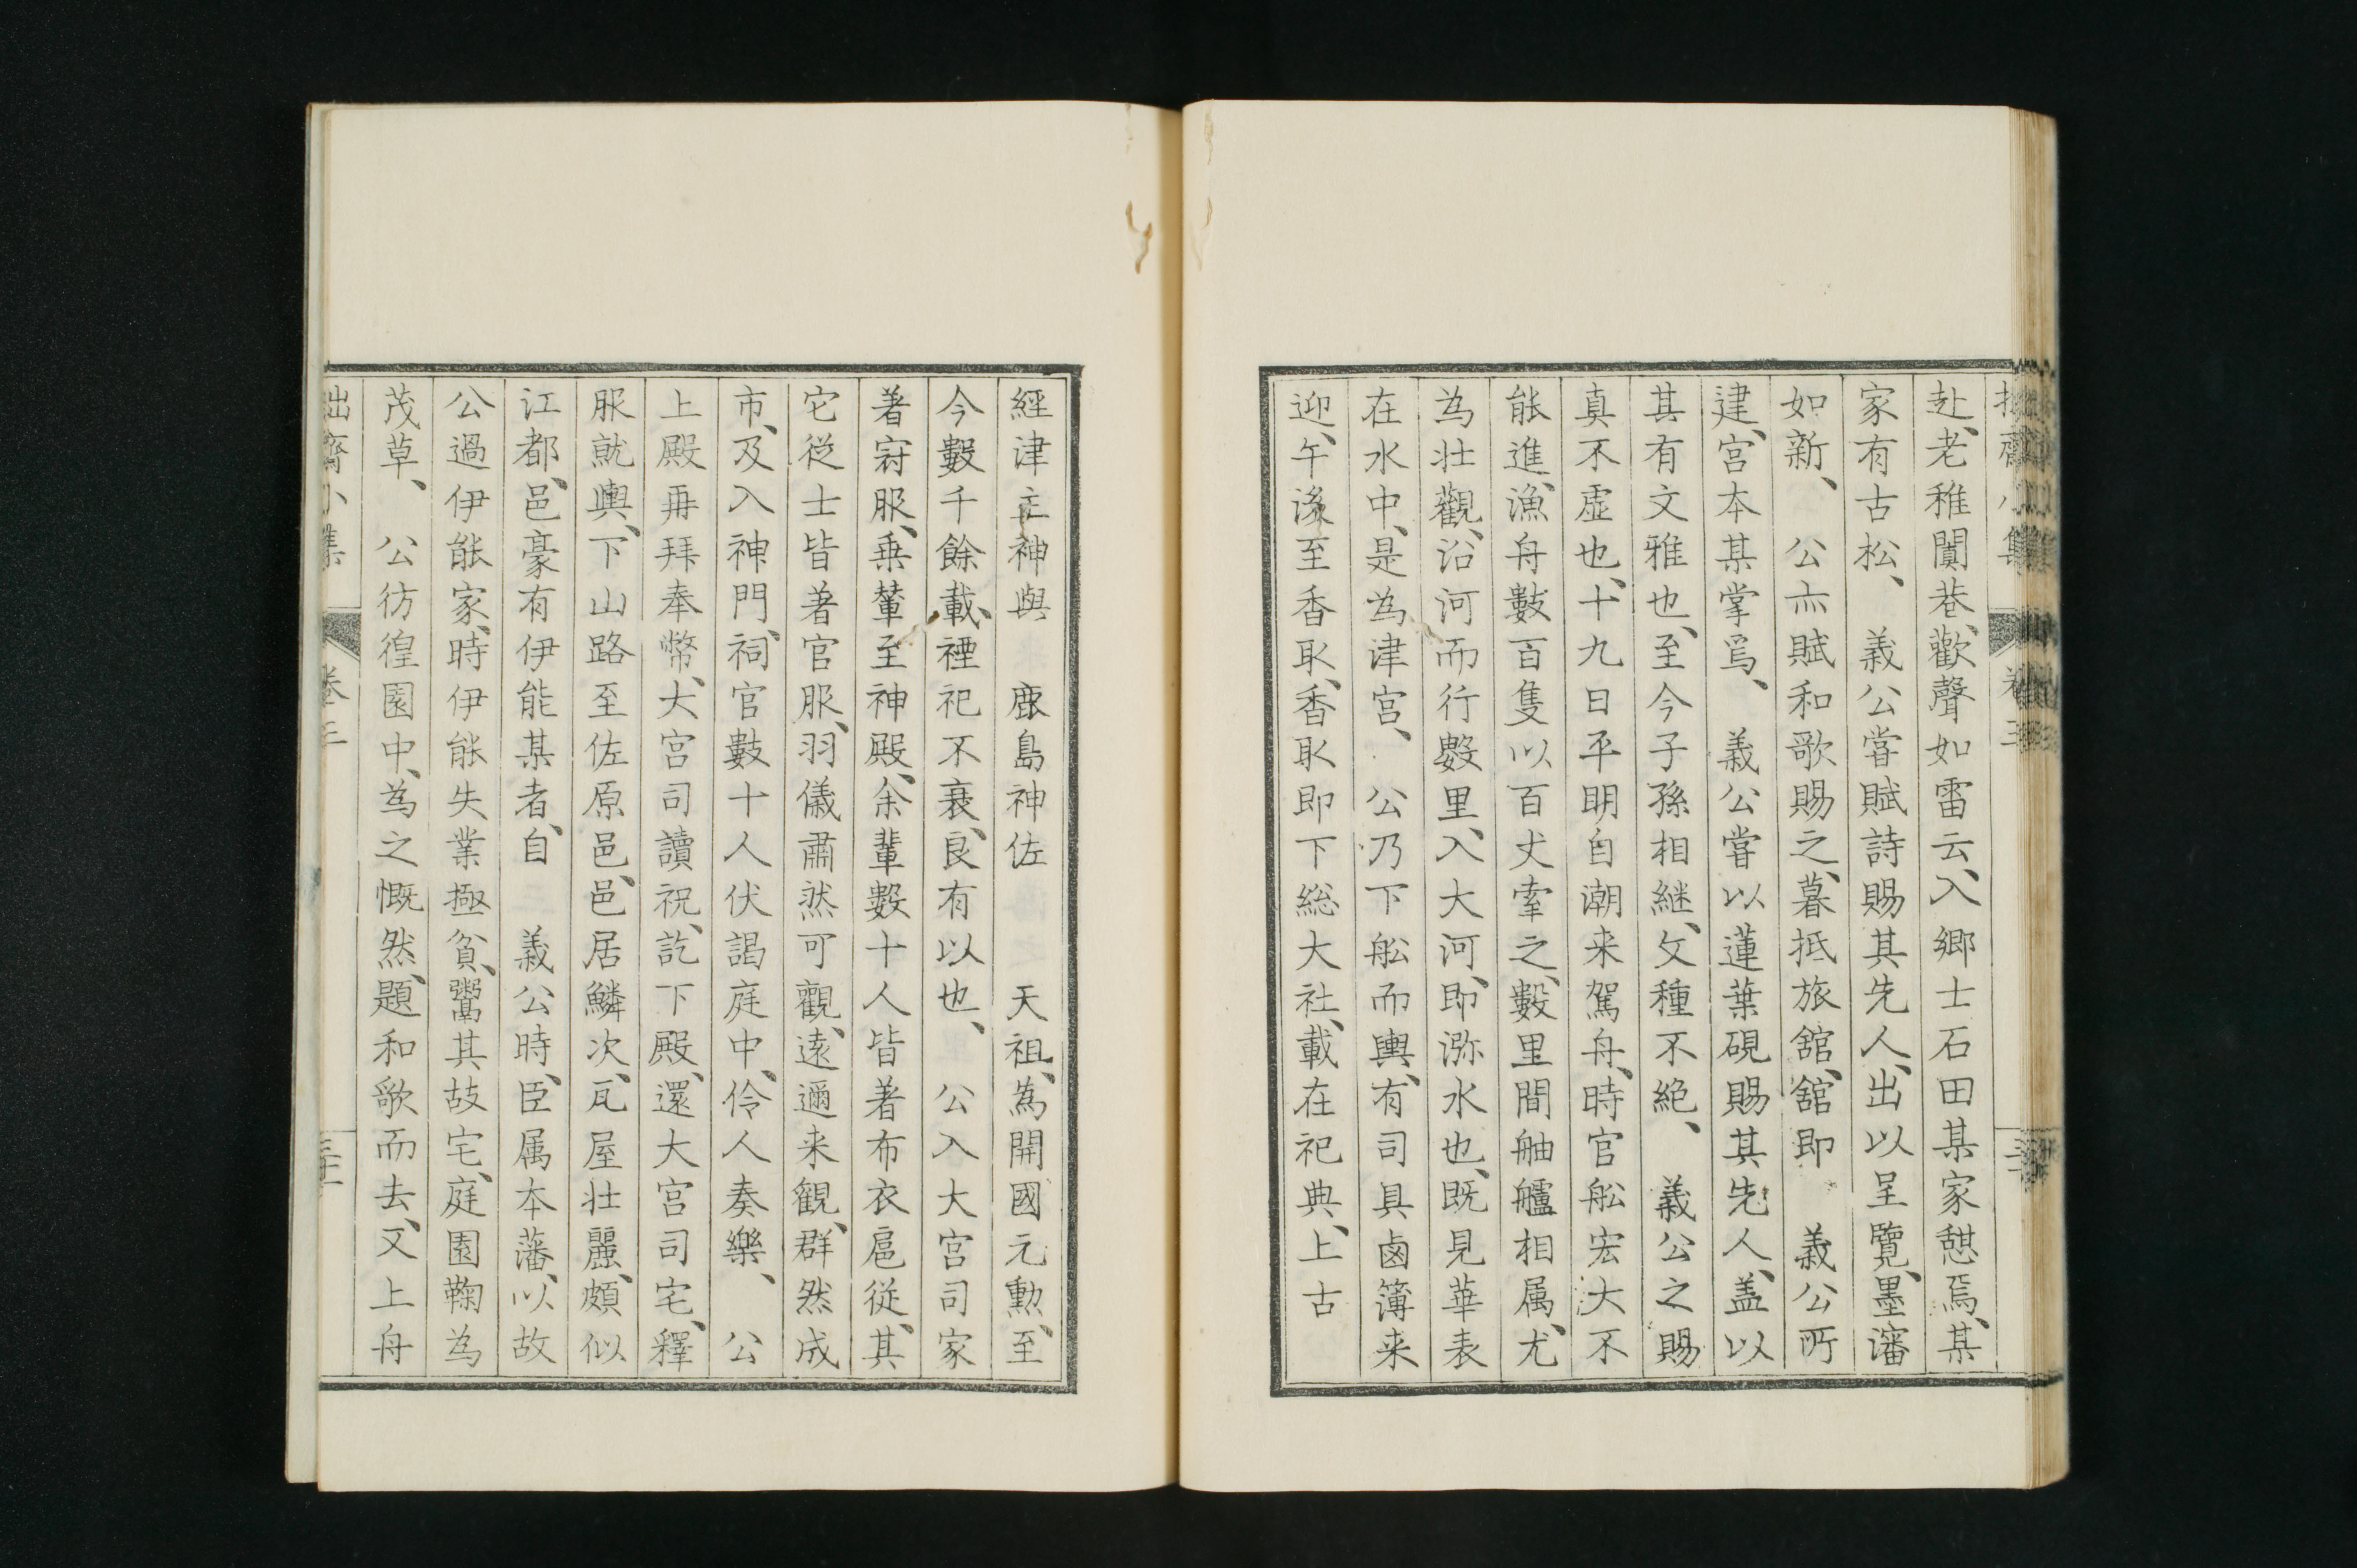 赴、老稚闐巷、歡聲如雷云、入鄉士石田某家憇焉、某
家有古松、　義公甞賦詩賜其先人、出以呈覽、墨瀋
如新、　公亦賦和歌賜之、暮抵旅舘、舘即　義公所
建、宮本某掌焉、　義公甞以蓮葉硯賜其先人、盖以
其有文雅也、至今子孫相継、文種不絶、　義公之賜
真不虚也、十九日平明自潮来駕舟、時官舩宏大不
能進、漁舟數百隻以百丈牽之、數里間舳艫相属、尤
為壮觀、沿河而行數里、入大河、即泝水也、既見華表
在水中、是為津宮、　公乃下舩而輿、有司具鹵簿来
迎、午後至香取、香取即下総大社、載在祀典、上古
經津主神與　鹿島神佐　天祖、為開國元勲、至
今數千餘載、禋祀不衰、良有以也、　公入大宮司家
著冠服、乗輦至神殿、余輩數十人皆著布衣扈従、其
它従士皆著官服、羽儀肅然可觀、遠邇来観、群然成
市、及入神門、祠官數十人伏謁庭中、伶人奏樂、　公
上殿再拜奉幣、大宮司讀祝、訖下殿、還大宮司宅、釋
服就輿、下山路至佐原邑、邑居鱗次、瓦屋壮麗、頗似
江都、邑豪有伊能某者、自　義公時、臣属本藩、以故
公過伊能家、時伊能失業極貧、鬻其故宅、庭園鞠為
茂草、　公彷徨園中、為之慨然、題和歌而去、又上舟
拙齋小集　卷三